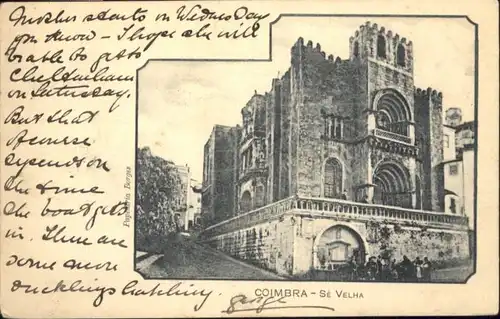 Mother starts on Wednesday
pm now - I hope she will
be able to get to
Cheltenham
on Saturday.
But that
of course
depends on
the time
the boat gets
in. There are
some more
ducklings hatching.
George
Papelaria Borges
COIMBRA - SÉ VELHA